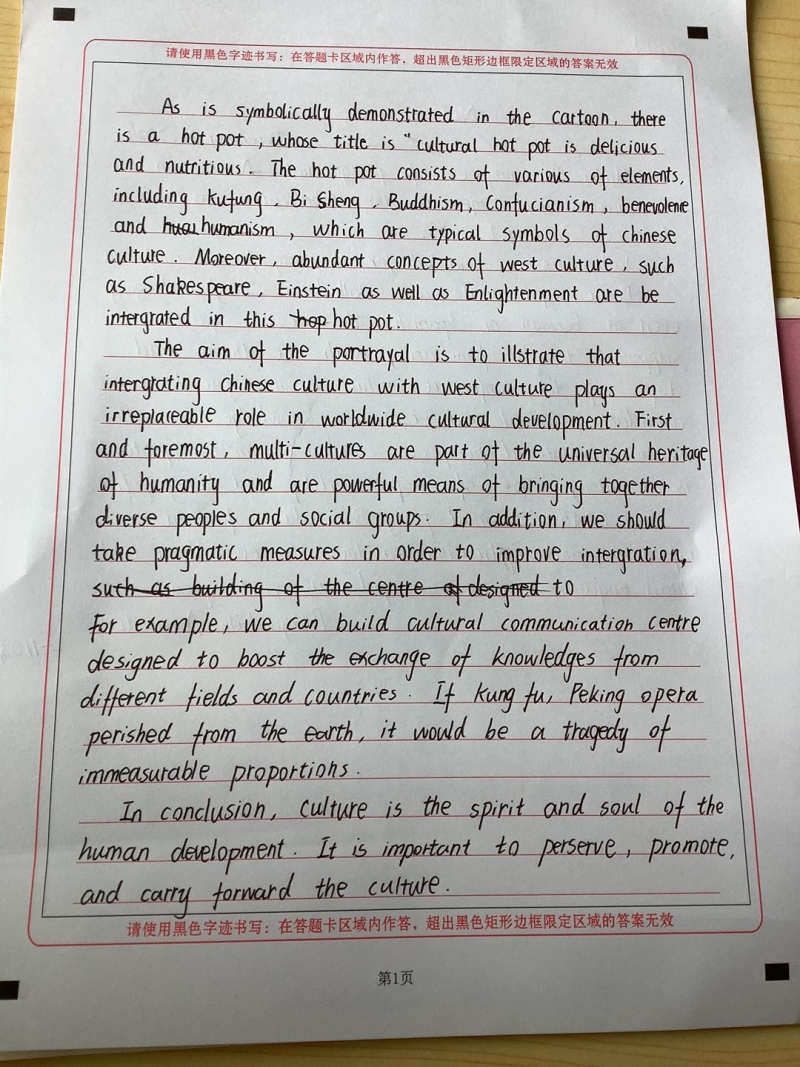 请使用黑色字迹书写：在答题卡区域内作答，超出黑色矩形边框限定区域的答案无效
As is symbolically demonstrated in the cartoon, there
is a hot pot, whose title is "cultural hot pot is delicious
and nutritious. The hot pot consists of various of elements,
including kufung, Bi Sheng, Buddhism, Confucianism, benevolene
and humanism, which are typical symbols of chinese
culture. Moreover, abundant concepts of west culture, such
as Shakespeare, Einstein as well as Enlightenment are be
intergrated in this hot pot.
The aim of the portrayal is to illstrate that
intergrating chinese culture with west culture plays an
irreplaceable role in worldwide cultural development. First
and foremost, multi-cultures are part of the universal heritage
of humanity and are powerful means of bringing together
diverse peoples and social groups. In addition, we should
take pragmatic measures in order to improve intergration,
such as building of the centre of designed to
for example, we can build cultural communication centre
designed to boost the exchange of knowledges from
different fields and countries. If kung fu, Peking opera
perished from the earth, it would be a tragedy of
immeasurable proportions.
In conclusion, culture is the spirit and soul of the
human development. It is important to perserve, promote,
and carry forward the culture.
请使用黑色字迹书写：在答题卡区域内作答，超出黑色矩形边框限定区域的答案无效
第1页